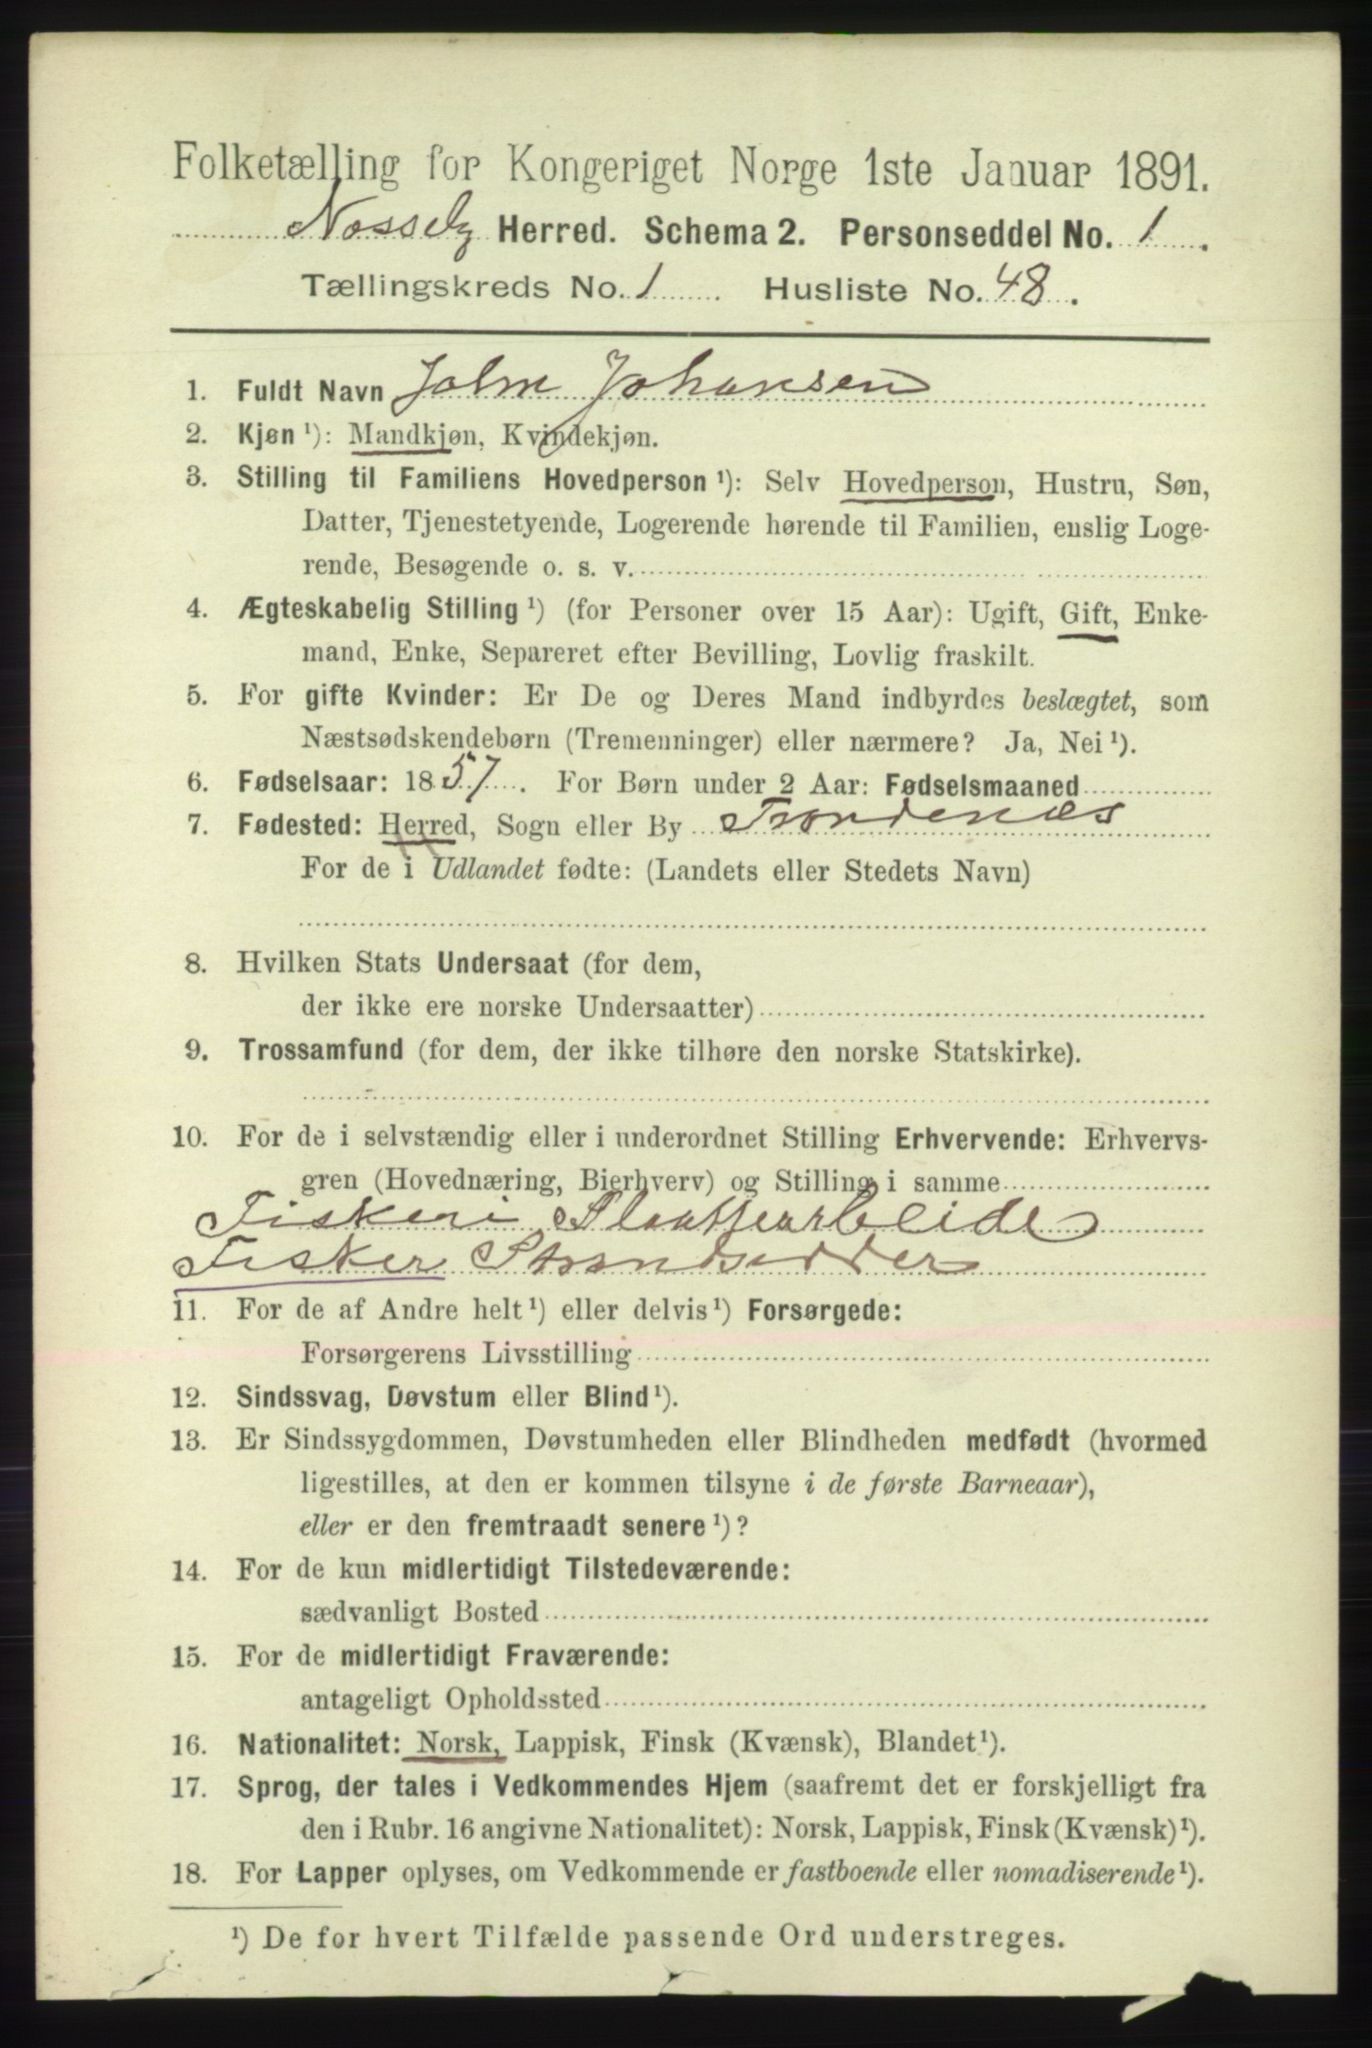 Folketælling for Kongeriget Norge 1ste Januar 1891.
Herred. Schema 2. Personseddel No. 1.
Tællingskreds No. 1 Husliste No. 48.
1. Fuldt Navn John Johansen
2. Kjøn ¹): Mandkjøn, Kvindekjøn.
3. Stilling til Familiens Hovedperson ¹): Selv Hovedperson, Hustru, Søn,
Datter, Tjenestetyende, Logerende hørende til Familien, enslig Loge-
rende, Besøgende o. s. v.
4. Ægteskabelig Stilling ¹) (for Personer over 15 Aar): Ugift, Gift, Enke-
mand, Enke, Separeret efter Bevilling, Lovlig fraskilt.
5. For gifte Kvinder: Er De og Deres Mand indbyrdes beslægtet, som
Næstsødskendebørn (Tremenninger) eller nærmere? Ja, Nei ¹).
6. Fødselsaar: 1857. For Børn under 2 Aar: Fødselsmaaned
7. Fødested: Herred, Sogn eller By Trondenæs
For de i Udlandet fødte: (Landets eller Stedets Navn)
8. Hvilken Stats Undersaat (for dem,
der ikke ere norske Undersaatter)
9. Trossamfund (for dem, der ikke tilhøre den norske Statskirke).
10. For de i selvstændig eller i underordnet Stilling Erhvervende: Erhvervs-
gren (Hovednæring, Bierhverv) og Stilling i samme
Fiskeri
Fisker Strandsidder
11. For de af Andre helt ¹) eller delvis ¹) Forsørgede:
Forsørgerens Livsstilling
12. Sindssvag, Døvstum eller Blind ¹).
13. Er Sindssygdommen, Døvstumheden eller Blindheden medfødt (hvormed
ligestilles, at den er kommen tilsyne i de første Barneaar),
eller er den fremtraadt senere ¹)?
14. For de kun midlertidigt Tilstedeværende:
sædvanligt Bosted
15. For de midlertidigt Fraværende:
antageligt Opholdssted
16. Nationalitet: Norsk, Lappisk, Finsk (Kvænsk), Blandet ¹).
17. Sprog, der tales i Vedkommendes Hjem (saafremt det er forskjelligt fra
den i Rubr. 16 angivne Nationalitet): Norsk, Lappisk, Finsk (Kvænsk) ¹).
18. For Lapper oplyses, om Vedkommende er fastboende eller nomadiserende ¹).
¹) De for hvert Tilfælde passende Ord understreges.